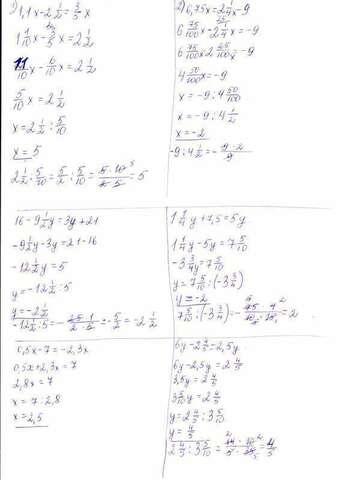 1) 1,1x-2 1/2=3/5 x
1 1/10 x-3/5 x=2 1/2
11/10 x-6/10 x=2 1/2
5/10 x=2 1/2
x=2 1/2:5/10
x=5
2 1/2:5/10=5/2:5/10=5·10/2·5=5
2) 6,75x=2 1/4 x-9
6 75/100 x-2 1/4 x=-9
6 75/100 x-2 25/100 x=-9
4 50/100 x=-9
x=-9:4 50/100
x=-9:4 1/2
x=-2
-9:4 1/2=-9·2/9
16-9 1/2 y=3y+21
-9 1/2 y-3y=21-16
-12 1/2 y=5
y=-12 1/2:5
y=-2 1/2
-12 1/2:5=-25·1/2·5=-5/2=-2 1/2
1 1/4 y+7,5=5y
1 1/4 y-5y=7 5/10
-3 3/4 y=7 5/10
y=7 5/10:(-3 3/4)
y=-2
7 5/10:(-3 3/4)=-75·4/10·15=2
0,5x-7=-2,3x
0,5x+2,3x=7
2,8x=7
x=7:2,8
x=2,5
6y-2 4/5=2,5y
6y-2,5y=2 4/5
3,5y=2 4/5
3 5/10 y=2 4/5
y=2 4/5:3 5/10
y=4/5
2 4/5:3 5/10=14·10/5·35=4/5